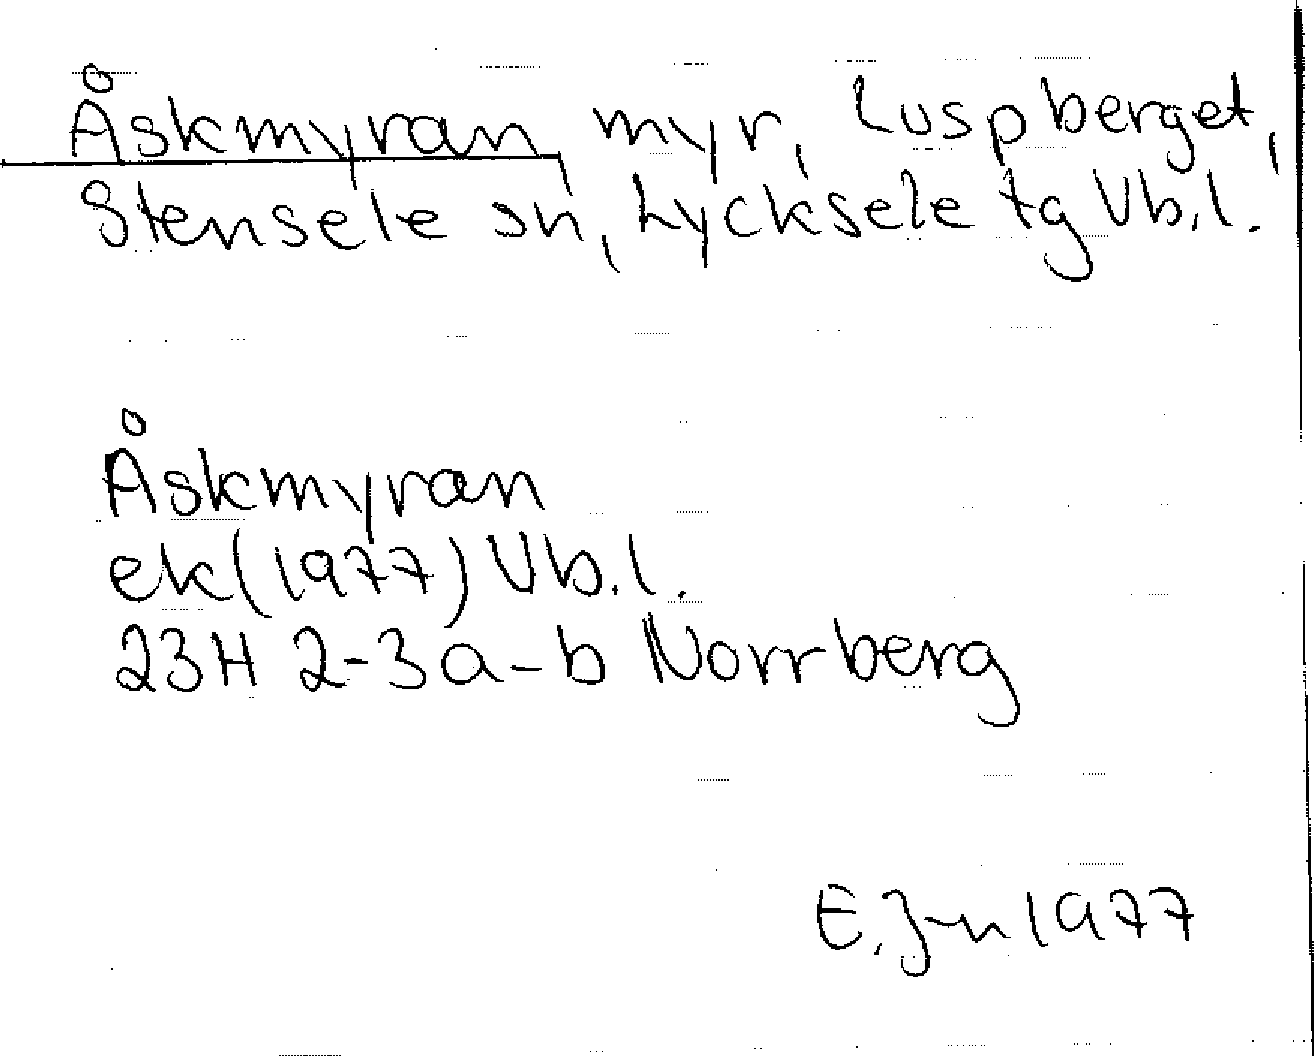 Åskmyran, myr, Luspberget,
Stensele sn, Lycksele tg Vb.l.
Åskmyran
ek(1977) Vb.l.
23H 2-3a-b Norrberg
E. 1977